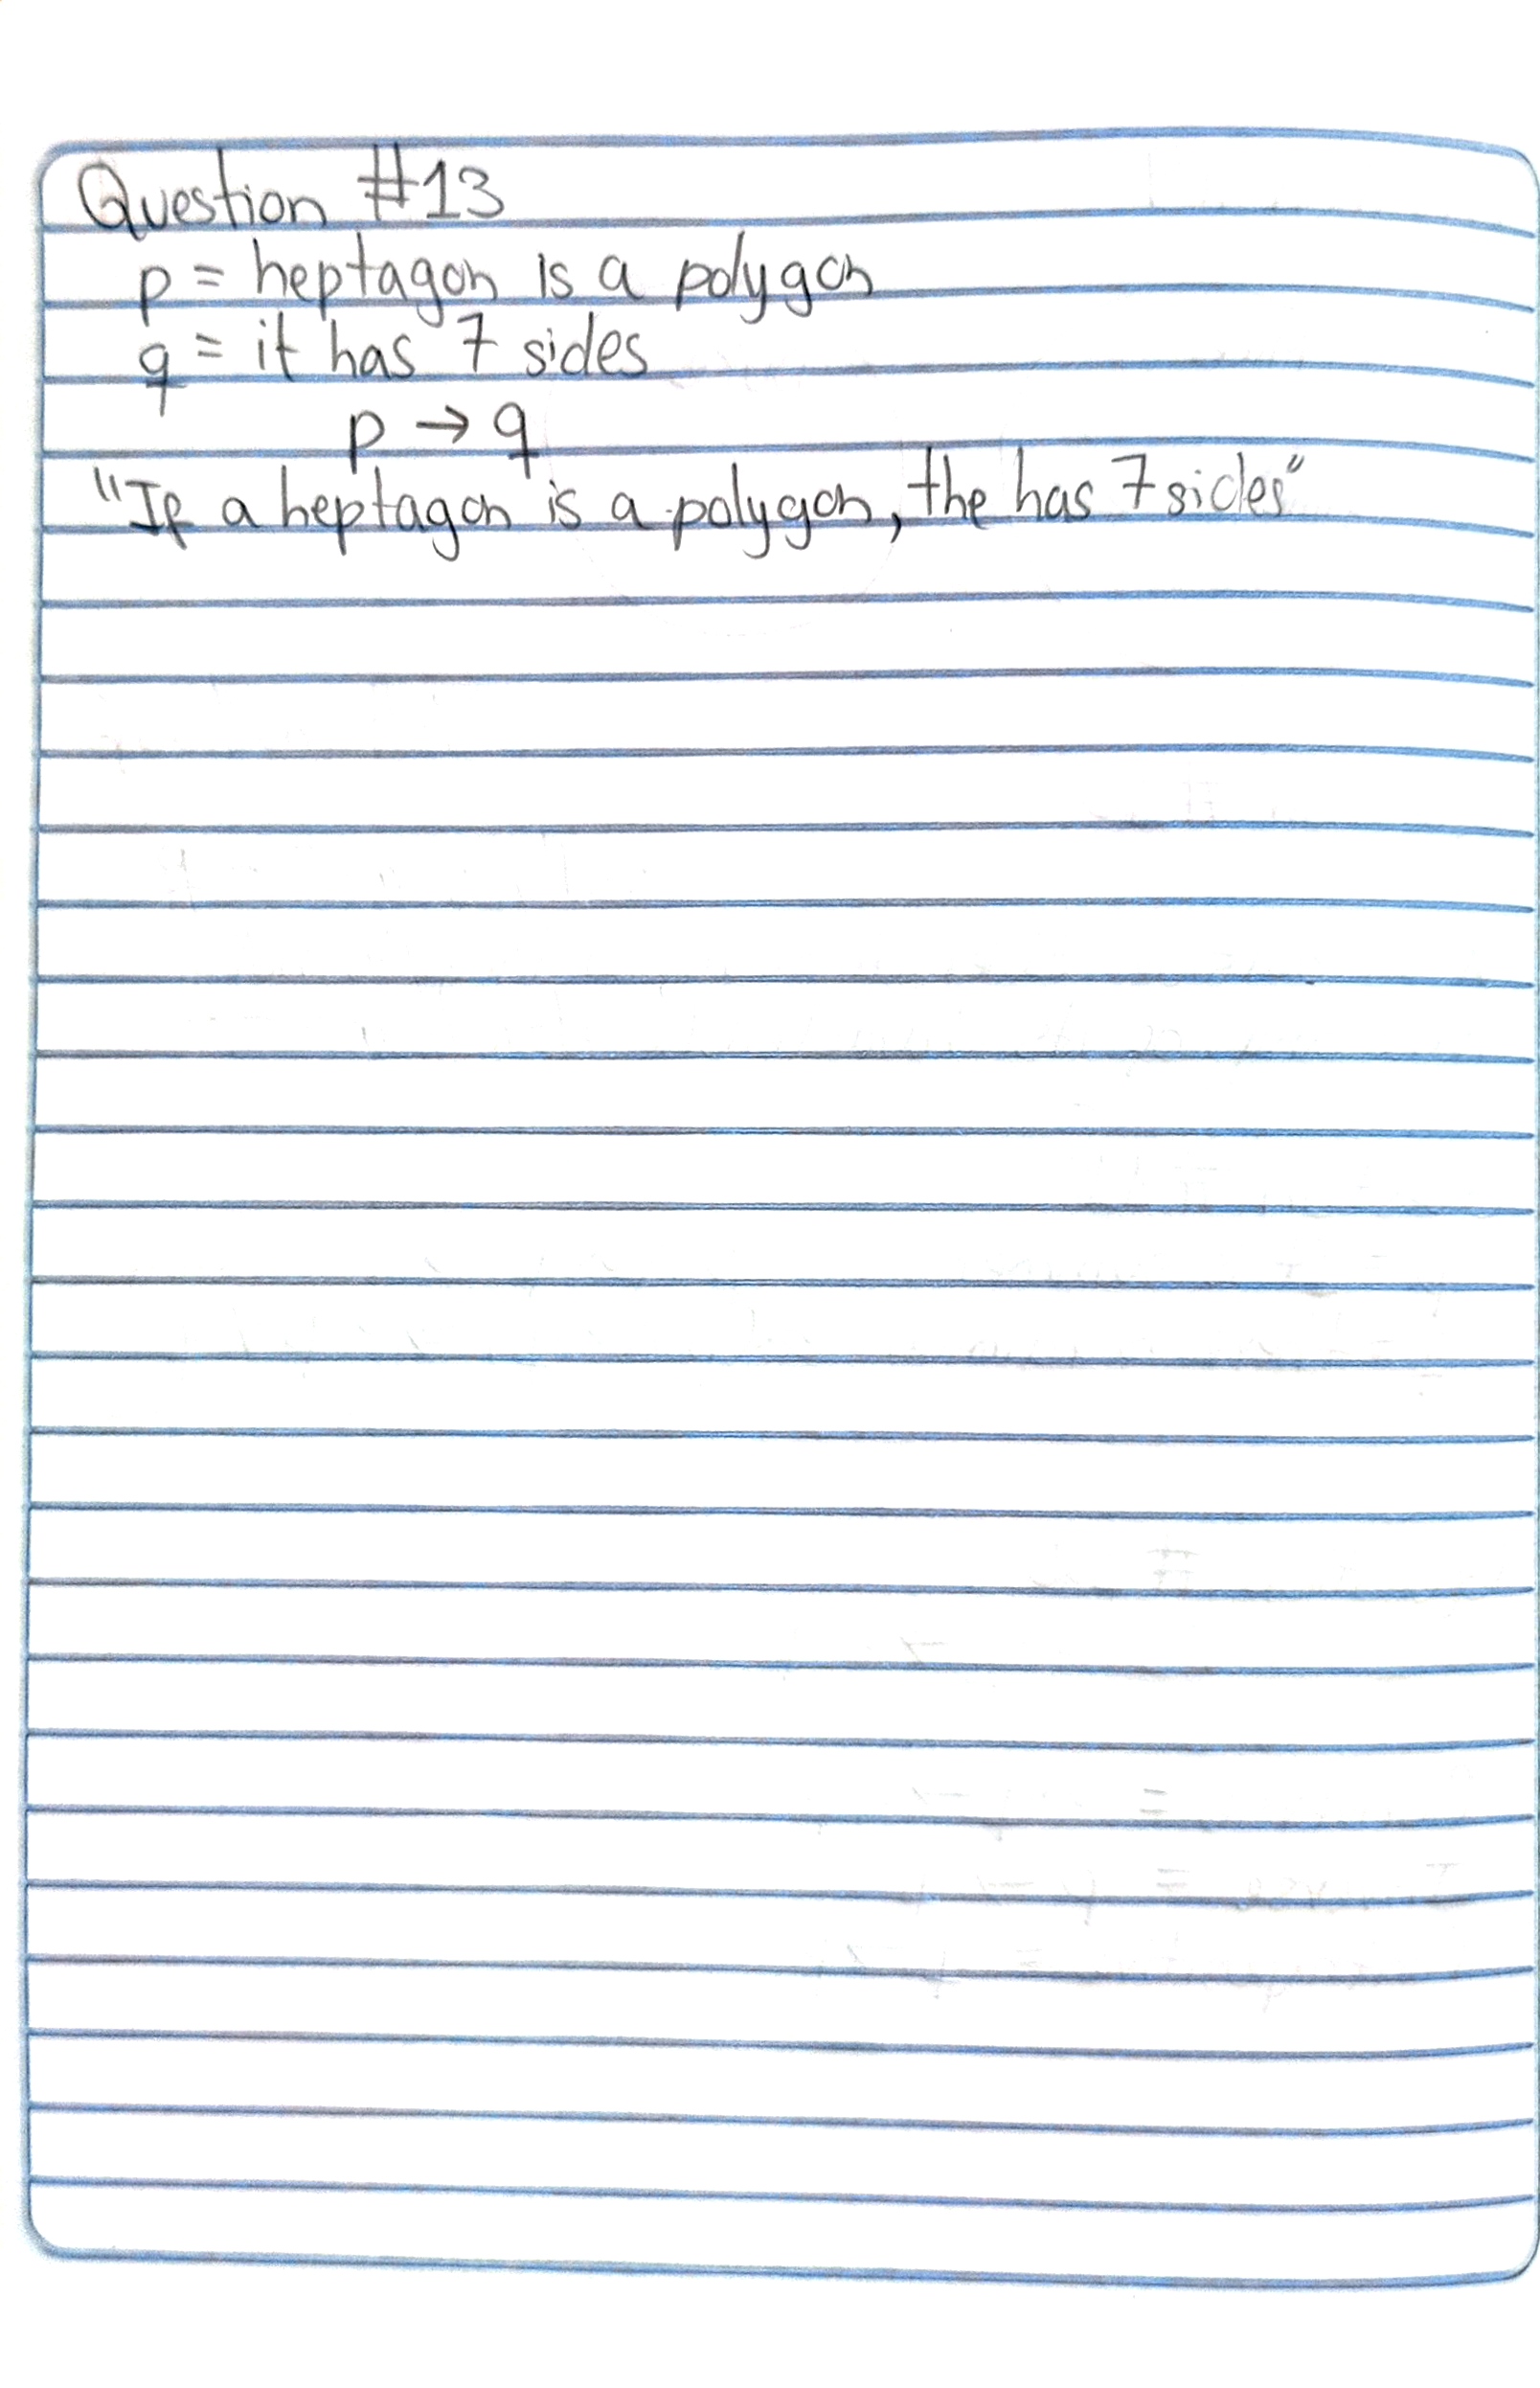 Question #13
p = heptagon is a polygon
q = it has 7 sides
p → q
"If a heptagon is a polygon, the has 7 sides"